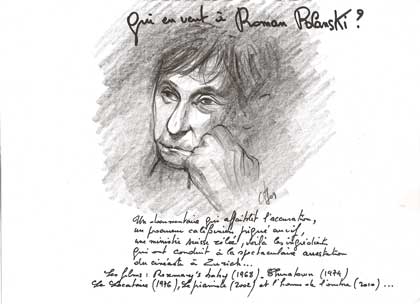 Qui en veut à Roman Polanski ?
Un documentaire qui affaiblit l'accusation,
un procureur californien piqué au vif,
une ministre suisse zélée, voilà les ingrédients
qui ont conduit à la spectaculaire arrestation
du cinéaste à Zurich...
Les films : Rosemary's baby (1968) - Chinatown (1974)
Le Locataire (1976), Le pianiste (2002) et l'homme de l'ombre (2010)...